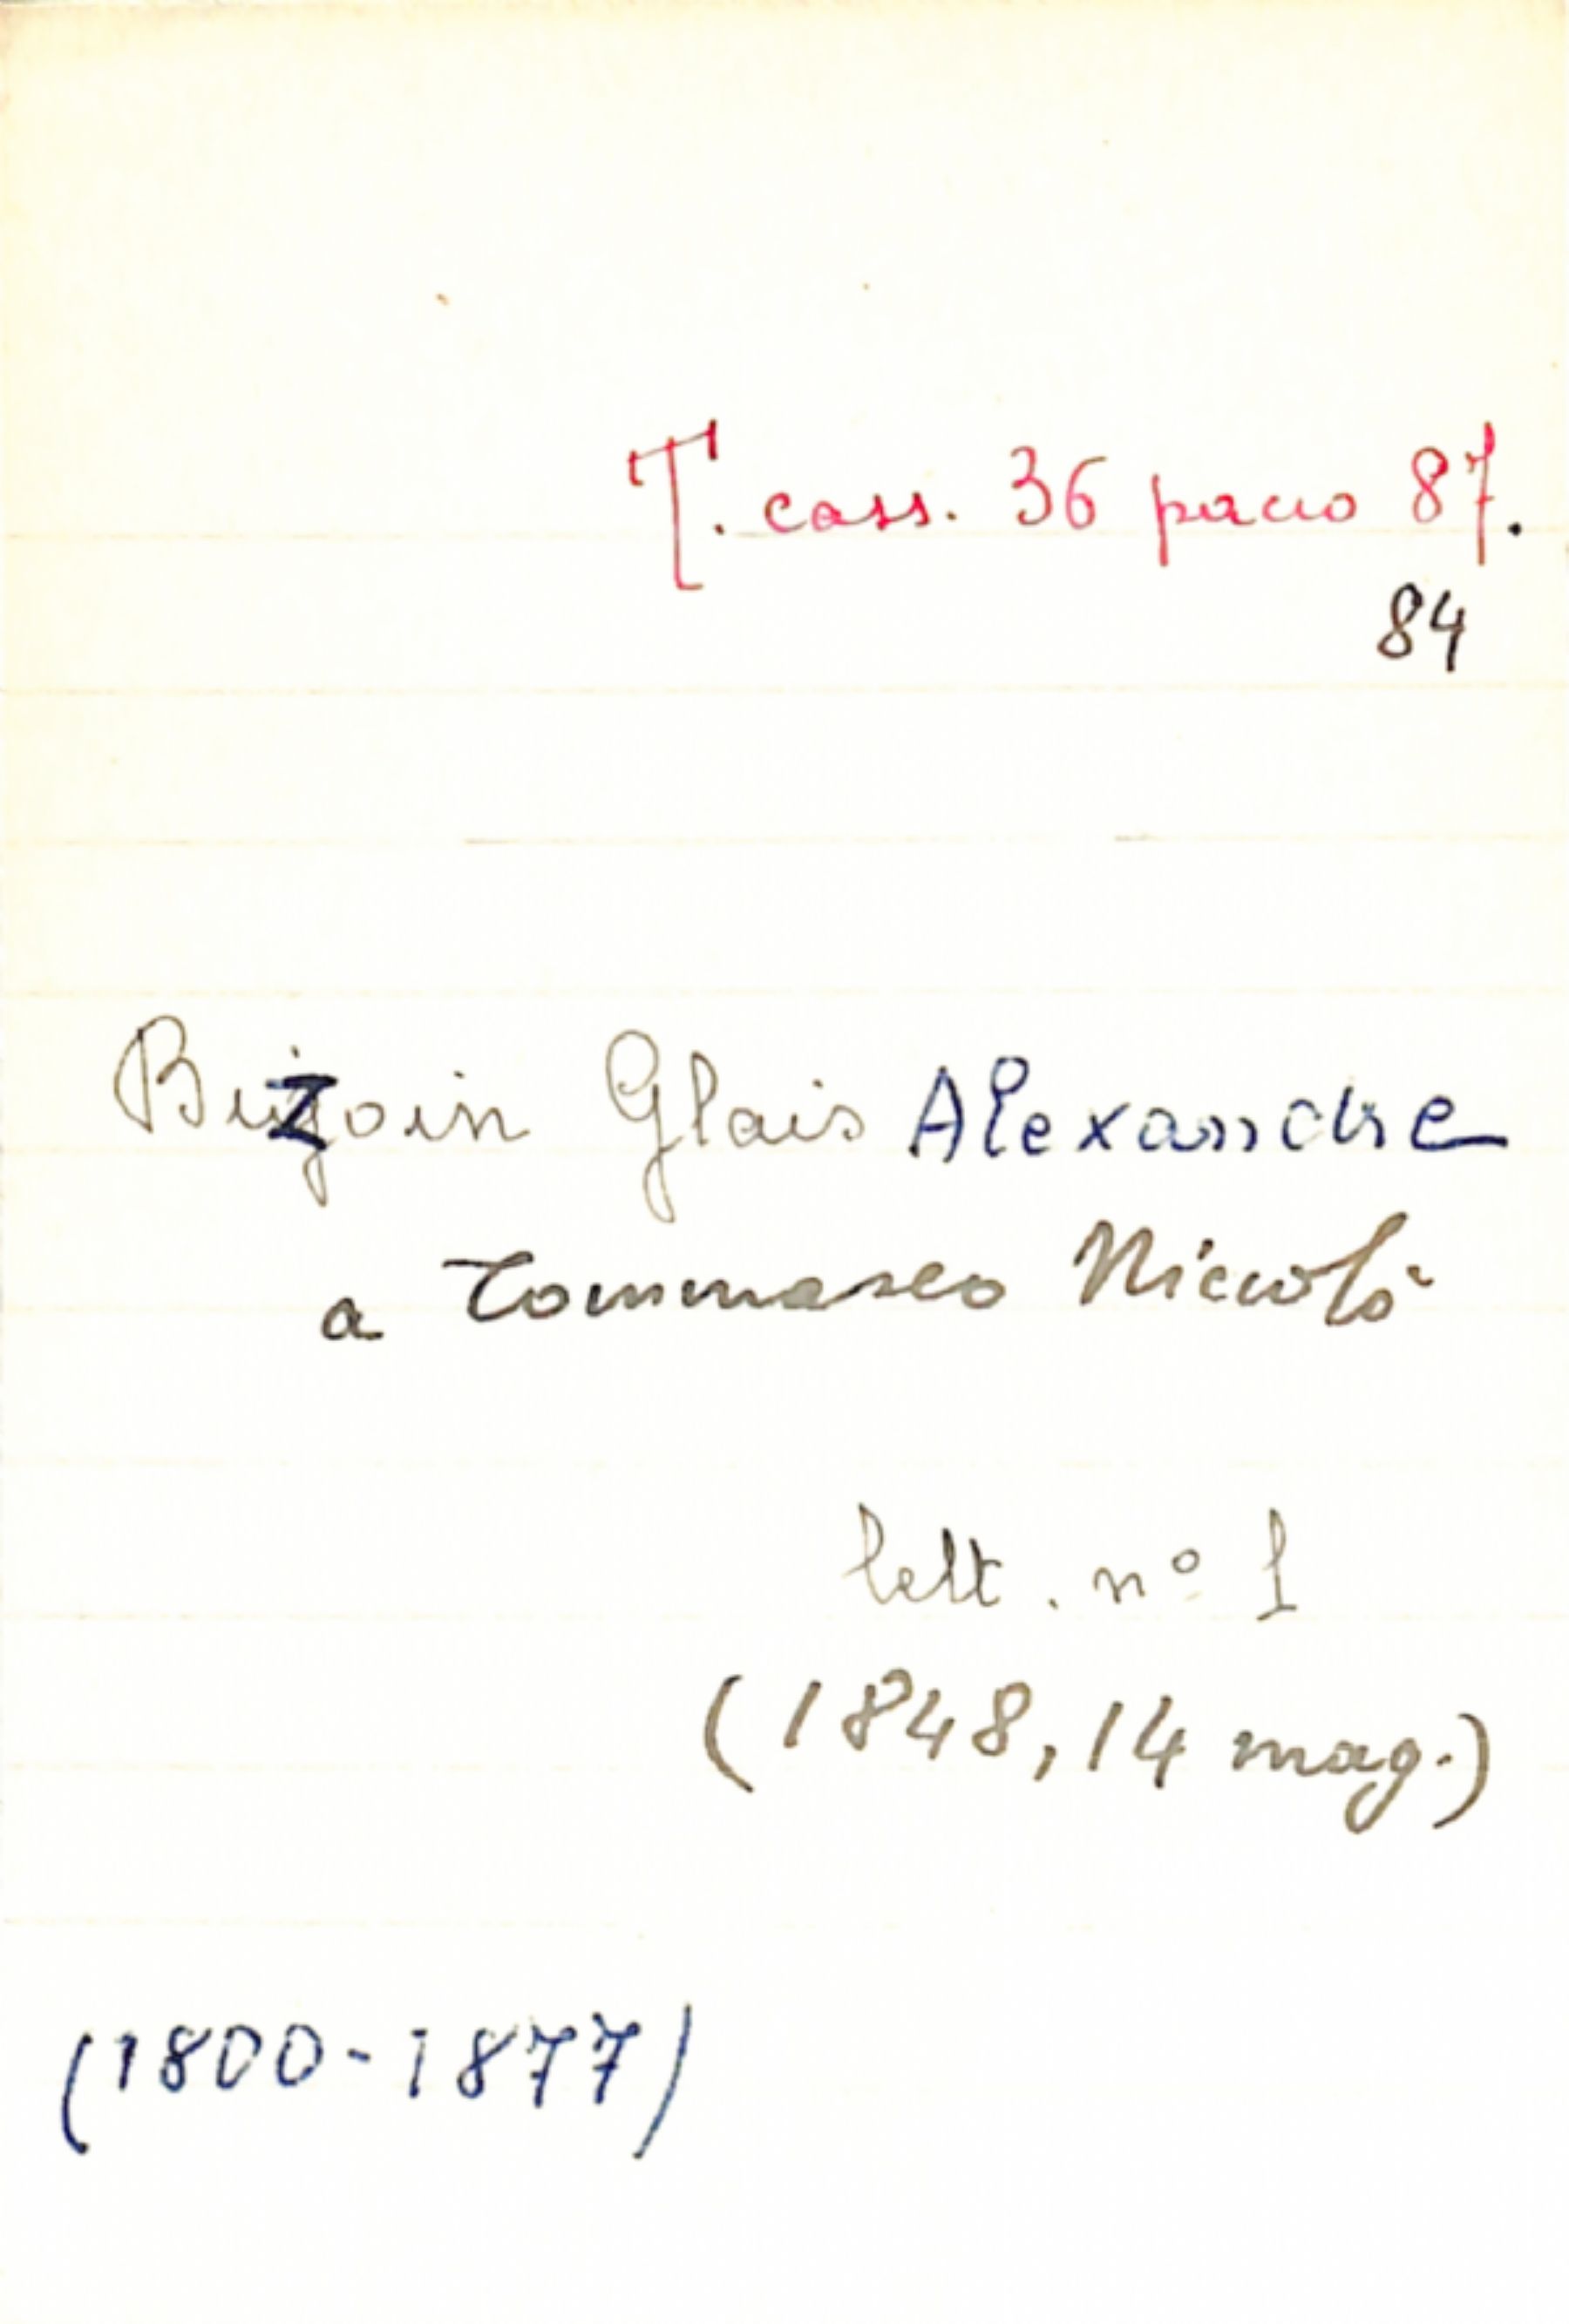 T. cass. 36 pacco 87.
84
Bizoin Glais Alexandre
a Tommaseo Niccolò
lett. n° 1
(1848, 14 mag.)
(1800-1877)